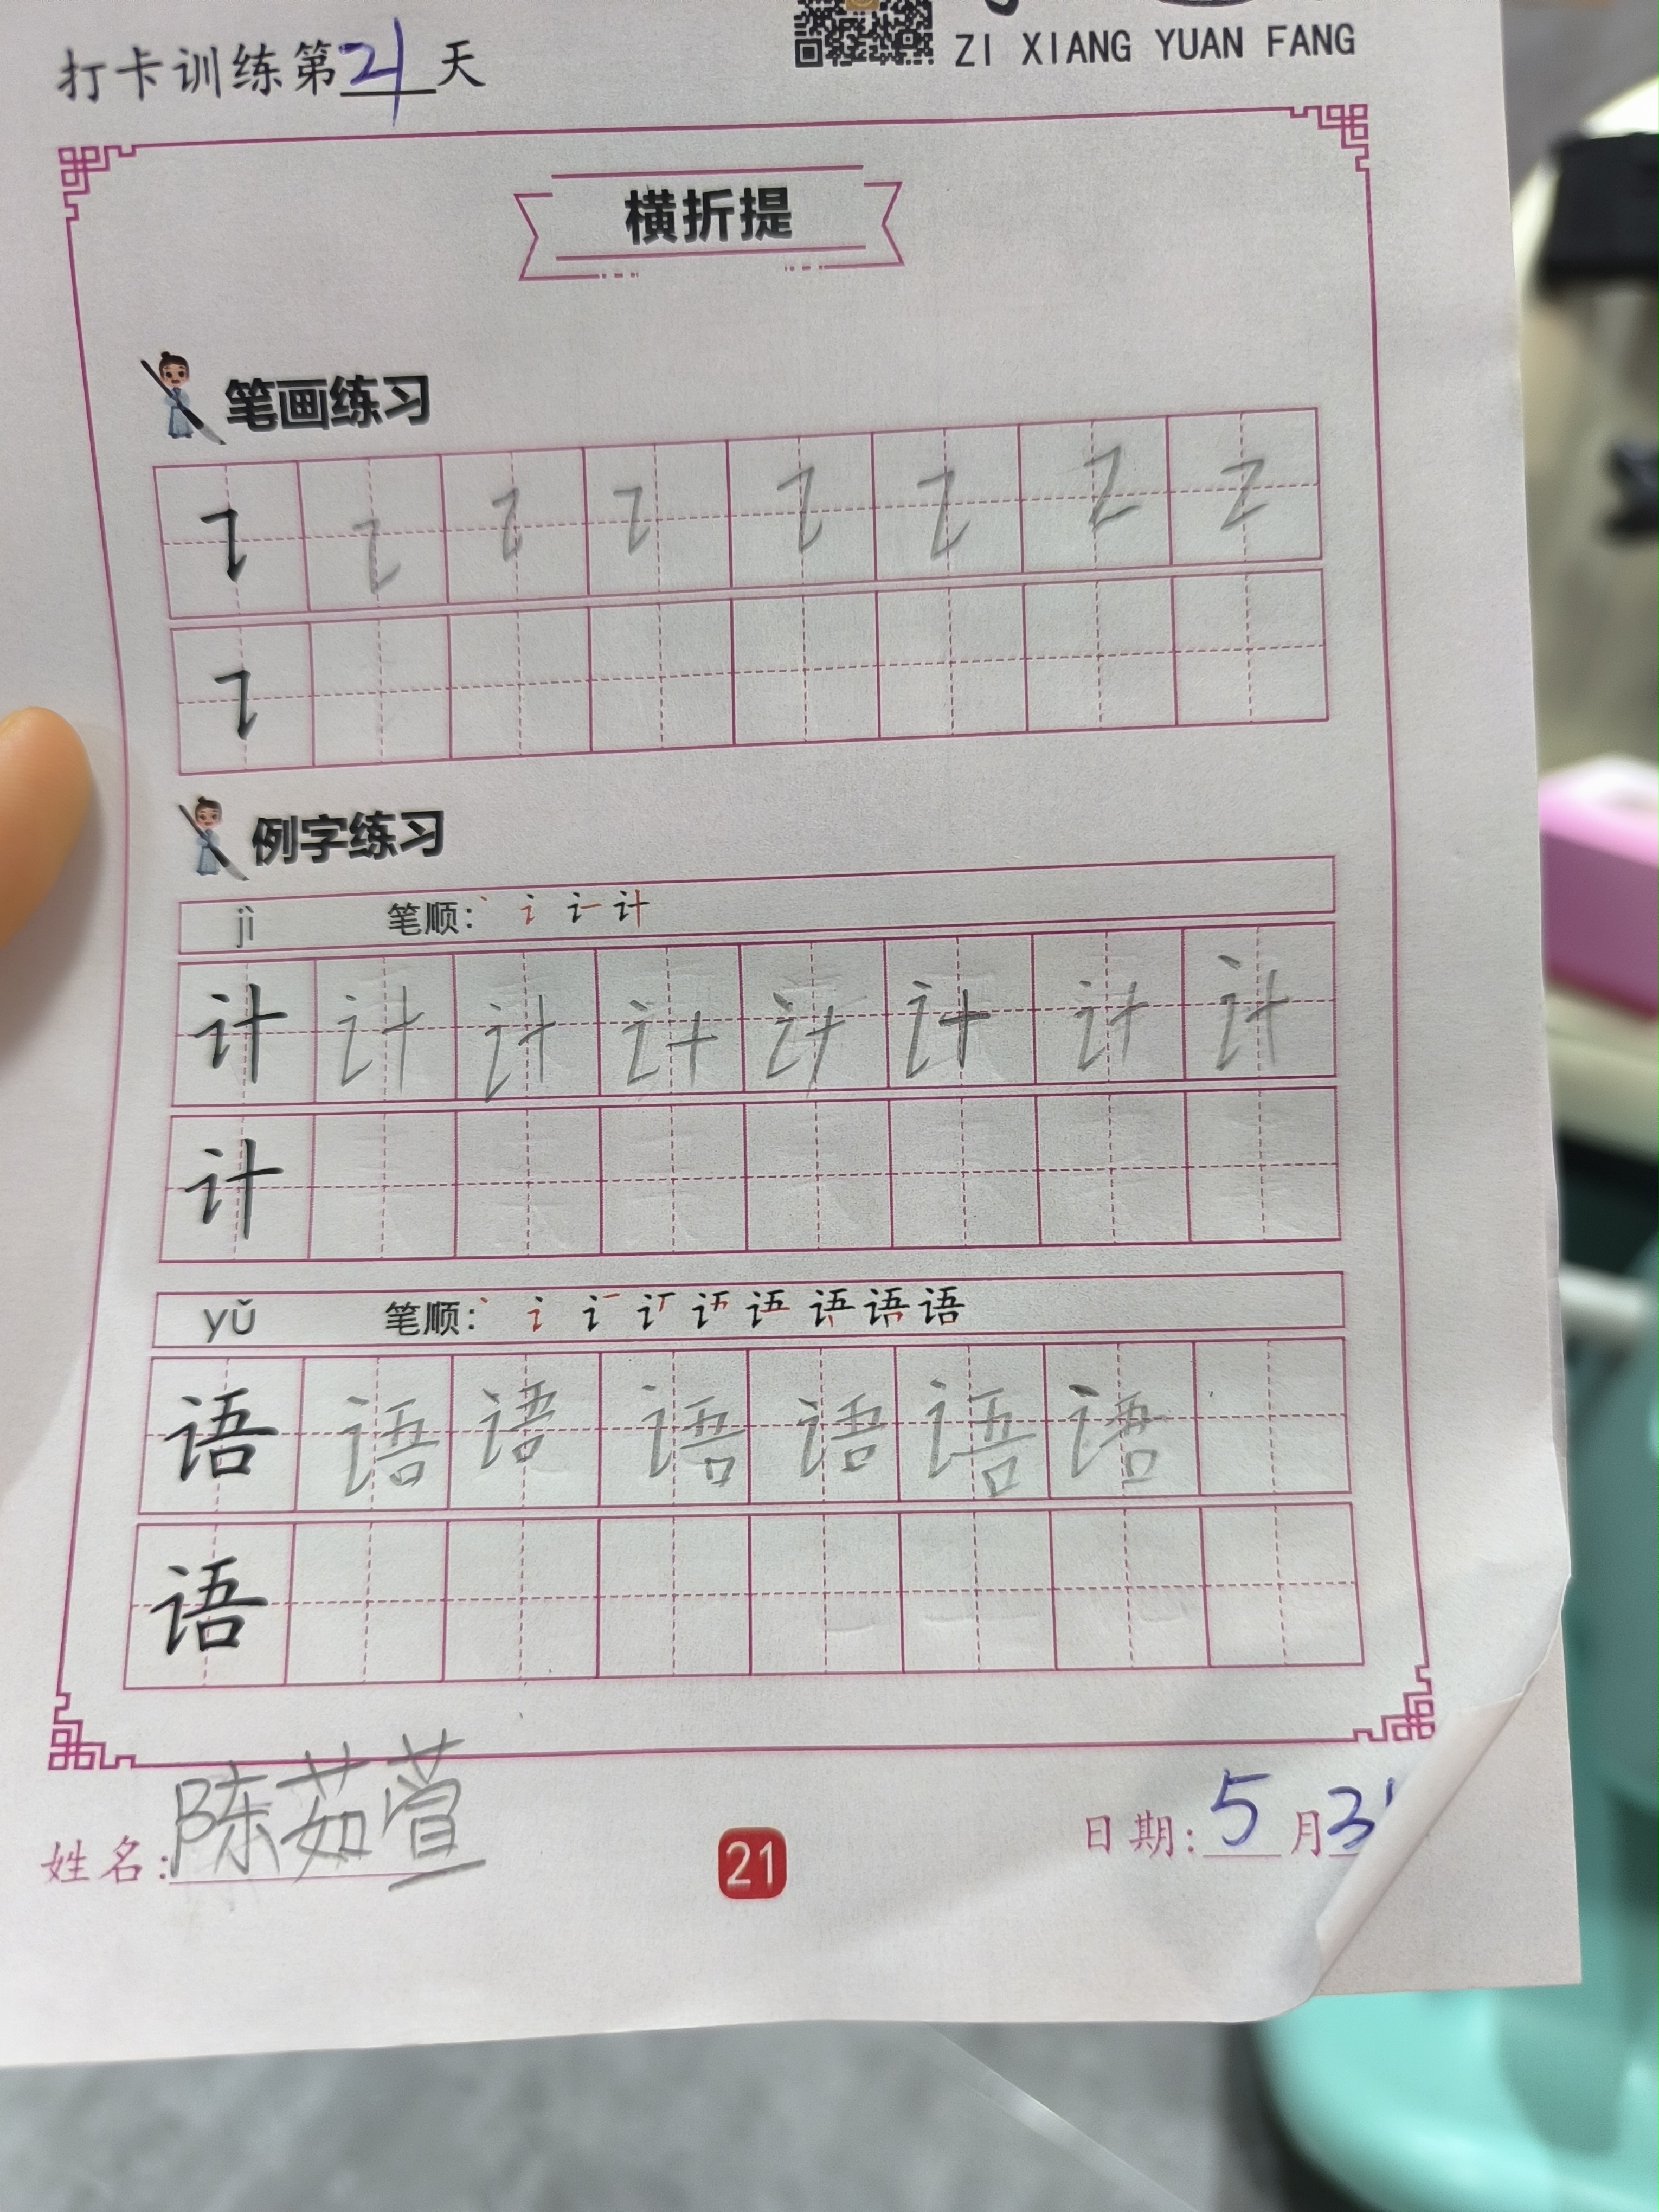 打卡训练第21天
ZI XIANG YUAN FANG
横折提
笔画练习
例字练习
jì 笔顺：
计 计 计 计 计 计 计 计
计
yǔ 笔顺：
语 语 语 语 语 语 语
语
姓名：陈茹萱
21
日期：5月31